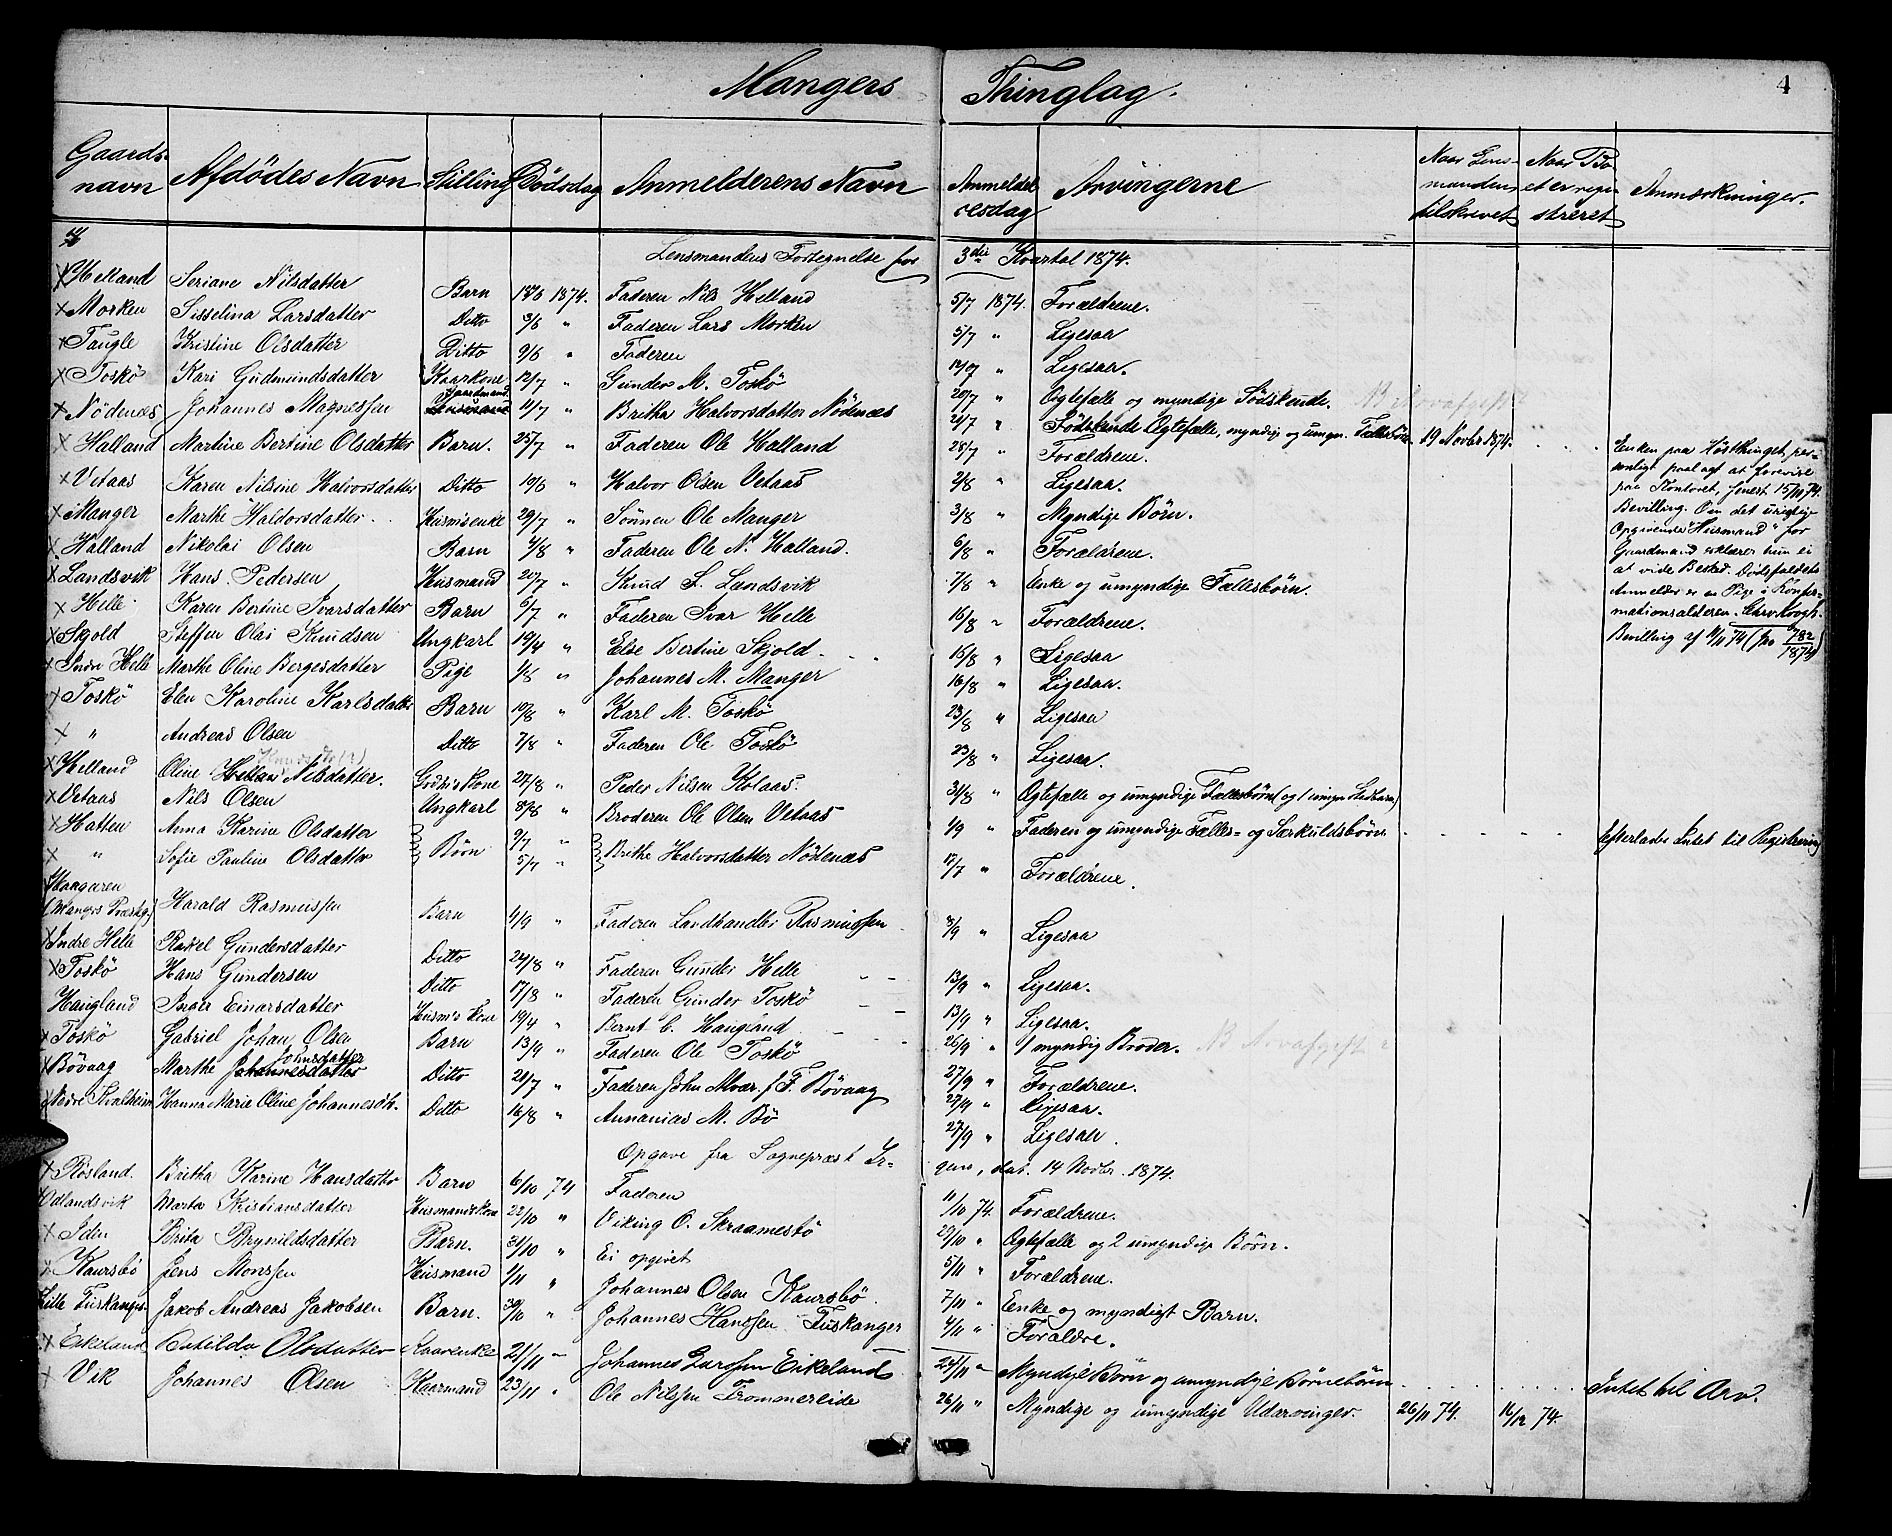 Mangers Thinglag.
4
Gaards-navn | Afdödes Navn | Stilling | Dödsdag | Anmelderens Navn | Anmeldelsesdag | Arvingerne | Naar Lensmanden tilskrevet | Naar Bo et er registreret | Anmærkninger.
Lensmandens Fortegnelse for 3die Kvartal 1874.
x Helland | Seriane Nilsdatter | Barn | 1874. | Faderen Nils Helland | 5/7 1874. | Forældrene.
x Morken | Sisselina Larsdatter | Ditto | 3/6 " | Faderen Lars Morken | 5/7 " | Ligesaa
x Taugle | Kristine Olsdatter | Ditto | 9/6 " | Faderen | 12/7 " | Ligesaa.
x Toskö | Kari Gudmundsdatter | Kaarkone | 12/7 " | Gunder M. Toskö | 20/7 " | Ægtefælle og myndige Södskende. | NB Arvafgift?
x Nödenæs | Johannes Magnessen | Gaardmand | 11/7 " | Britha Halvorsdatter Nödenæs | 21/7 " | Ægtefælle, myndig og umyn. Fællesbörn | 19 Novbr 1874.
x Halland | Martine Bertine Olsdatter | Barn. | 25/7 " | Faderen Ole Halland | 28/7 " | Forældrene.
x Vetaas | Karen Nilsine Halvorsdatter | Ditto | 19/6 " | Halvor Olsen Vetaas | 2/8 " | Ligesaa.
x Manger | Marthe Haldorsdatter | Husm's enke | 29/7 " | Sönnen Ole Manger | 3/8 " | Myndige Börn.
x Halland | Nikolai Olsen | Barn | 4/8 " | Faderen Ole N. Halland. | 6/8 " | Forældrene.
x Landsvik | Hans Pedersen | Husmand | 20/7 " | Knud L. Landsvik | 7/8 " | Enke og umyndige Fællesbörn.
x Helle | Karen Bertine Ivarsdatter | Barn | 6/7 " | Faderen Ivar Helle | 16/8 " | Forældrene.
x Skjold | Steffen Olai Knudsen | Ungkarl | 19/4 " | Else Bertine Skjold | 16/8 " | Ligesaa
x Indre Helle | Marthe Oline Bergesdatter | Pige | 1/8 " | Johannes M. Manger | 16/8 " | Ligesaa.
x Toskö | Elen Karoline Karlsdatter | Barn | 10/8 " | Karl M. Toskö | 23/8 " | Ligesaa
x " | Andreas Olsen | Ditto | 7/8 " | Faderen Ole Toskö | 23/8 " | Ligesaa.
Enken paa Høstthinget personligt paalagt at forevise paa Kontoret, senest 15/11 74. Bevilling. Om det urigtige Opgivende "Husmand" for Gaardmand erklærer hun ei at vide Besked. Dödsfaldets Anmelder er en Pige i Konfirmationsalderen.
Bevilling af 9/11 74 (fro 782/1874)
x Helland | Oline Nilsdatter. | Kone | 27/8 " | Peder Nilsen Kolaas. | 31/8 " | Ægtefælle og umyndige Fællesbörn (og 1 umyn. Stedbarn)
x Vetaas | Nils Olsen | Ungkarl | 8/8 " | Broderen Ole Olsen Vetaas | 1/9 " | Faderen og umyndige Fælles- og Særkuldsbörn. | Efterlader Intet til Registrering
x Hatten | Anna Karine Olsdatter | Börn | 9/7 " | Brithe Halvorsdatter Nödenæs | 17/7 " | Forældrene.
x " | Sofie Pauline Olsdatter | 5/7 "
(Mangers Præstg.) | Harald Rasmussen | Barn | 4/9 " | Faderen Landhandler Rasmussen | 8/9 " | Ligesaa
x Indre Helle | Rakel Gundersdatter | Ditto | 24/8 " | Faderen Gunder Helle | 13/9 " | Ligesaa.
x Toskö | Hans Gundersen | Ditto | 17/8 " | Faderen Gunder Toskö | 13/9 " | Ligesaa.
Haugland | Inger Einarsdatter | Husm's Kone | 19/4 " | Bernt C. Haugland | 26/9 " | 1 myndig Broder. | NB Arvafgift?
x Toskö | Gabriel Johan Olsen | Barn | 13/9 " | Faderen Ole Toskö | 27/9 " | Forældrene.
x Bövaag | Marthe Johnsdatter | Ditto | 20/7 " | Faderen John Bövaag | 27/9 " | Ligesaa.
x Nedre Kvalheim | Hanna Marie Oline Johannesdtr. | Ditto | 16/8 " | Annanias M. Bö | 27/9 " | Ligesaa.
Opgave fra Sognepræst Irgens, dat. 14 Novbr. 1874.
x Røsland. | Britha Karine Hansdatter | Barn | 6/10 74 | Faderen | 11/10 74. | Forældrene.
Odlandsvik | Marta Kristiansdatter | Husmandskone | 22/10 " | Viking O. Skraamesbö | 29/10 " | Ægtefælle og 2 umyndige Börn.
x Iden | Brita Brynildsdatter | Barn. | 31/10 " | Ei opgivet | 5/11 " | Forældrene.
x Kaursbö | Jens Monssen | Husmand | 1/11 " | Johannes Olsen Kaursbö. | 7/11 " | Enke og myndigt Barn.
Lille Fuskanger | Jakob Andreas Jakobsen | Barn. | 30/10 " | Johannes Hanssen Fuskanger | 4/11 " | Forældre.
x Eikeland | Batilda Olsdatter | Kaarenke | 21/11 " | Johannes Larssen Eikeland | 24/11 " | Myndige Börn og umyndige Börnebörn | Intet til Arv.
x Vik | Johannes Olsen | Kaarmand | 23/11 " | Ole Nilssen Frommereide | 26/11 " | Myndige og umyndige Udarvinger. | 26/11 74. | 16/12 74.